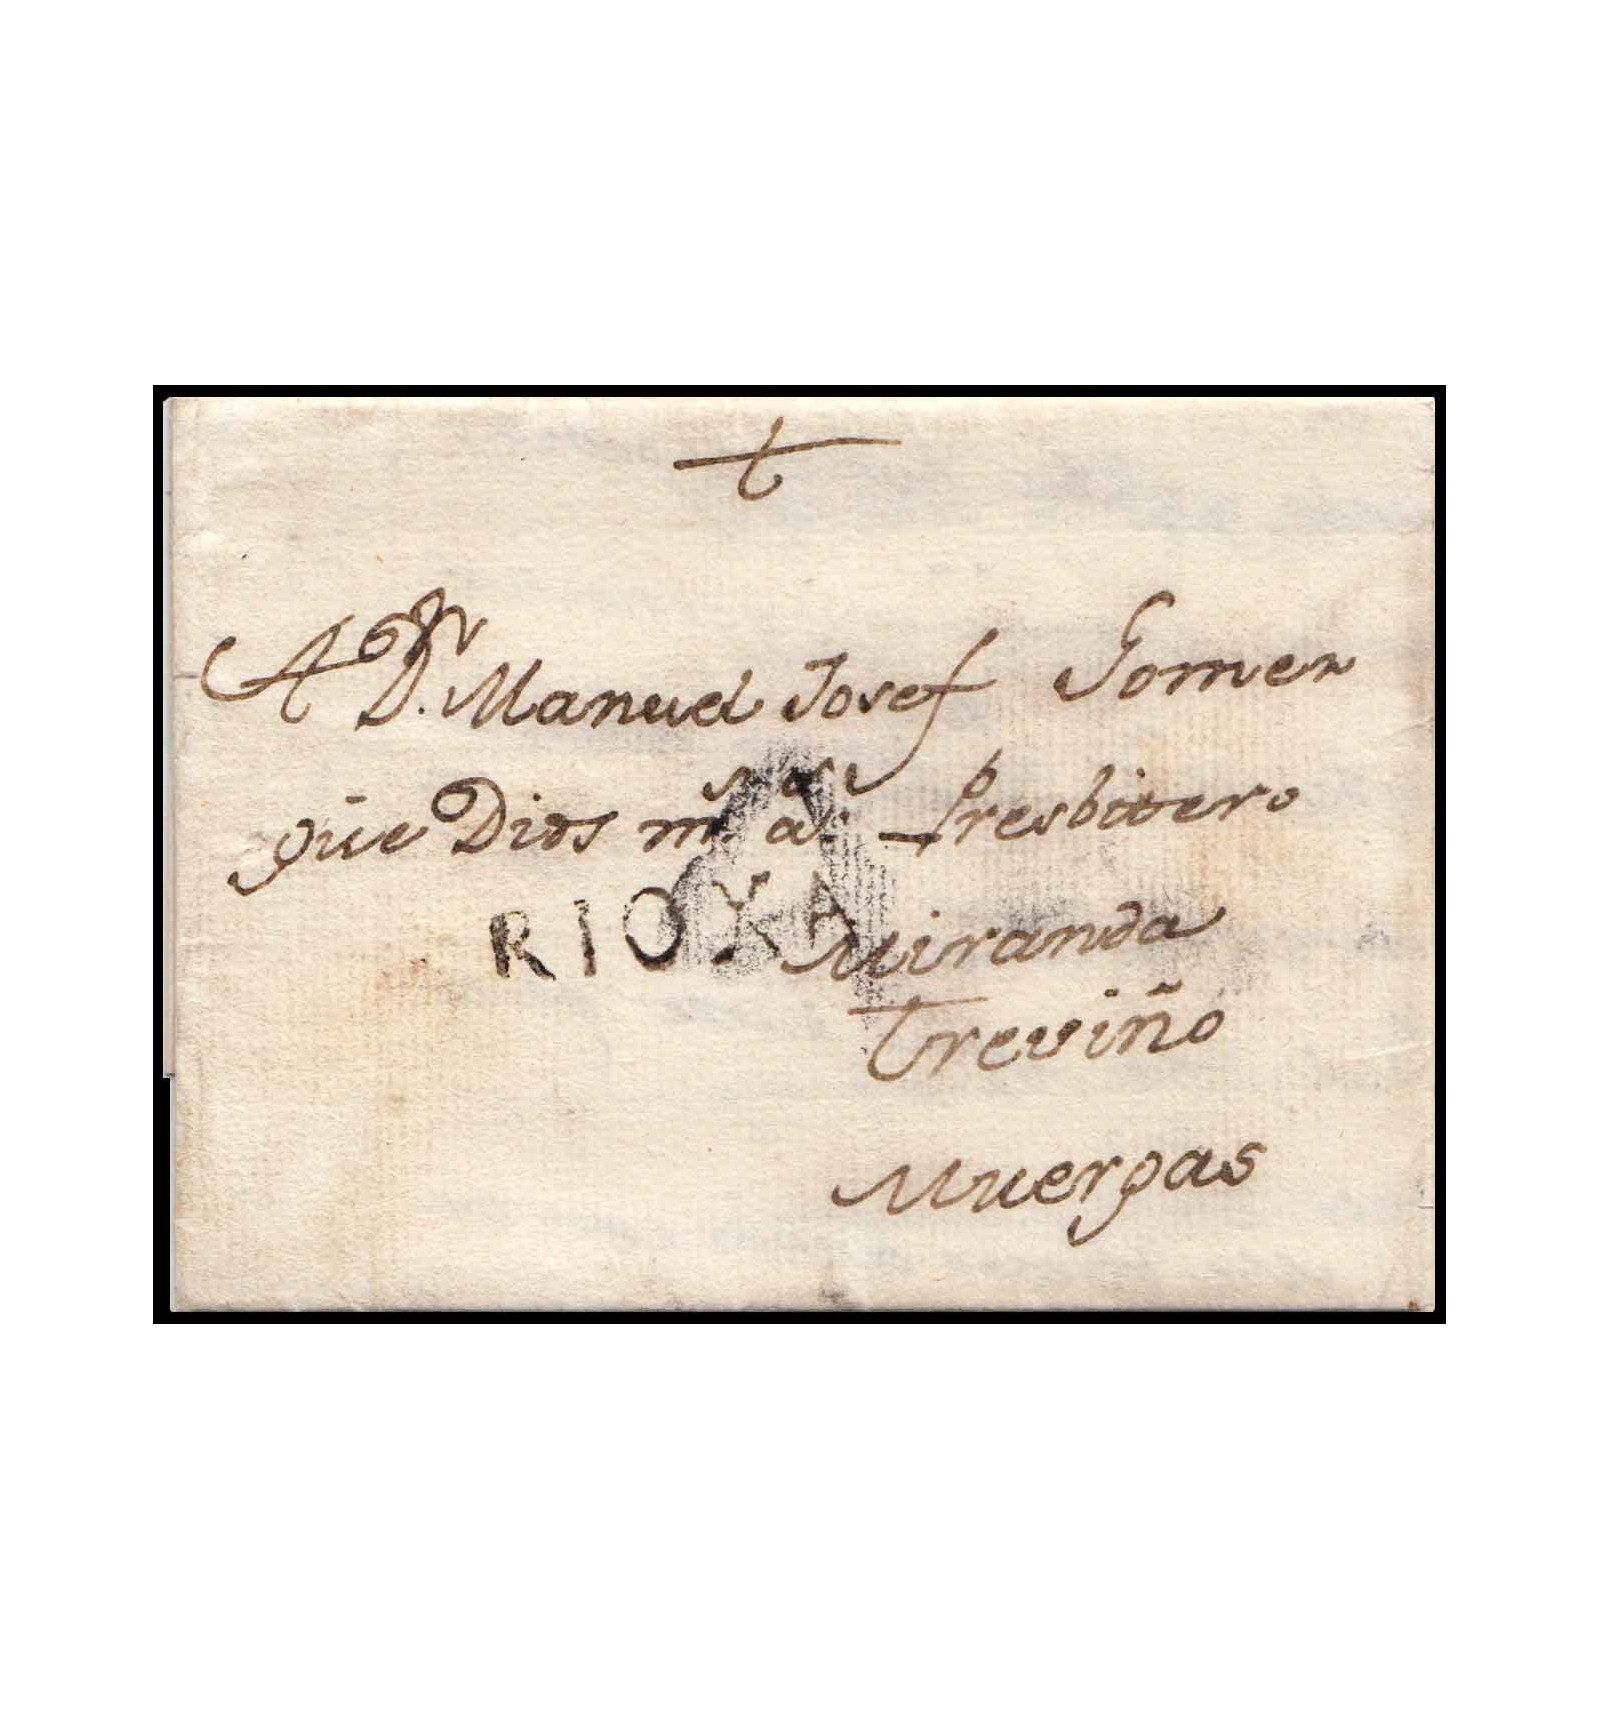 †
A D.n Manuel Josef Gomez
que Dios m.s a.s Presbitero
RIOXA
Miranda
Treviño
Muergas